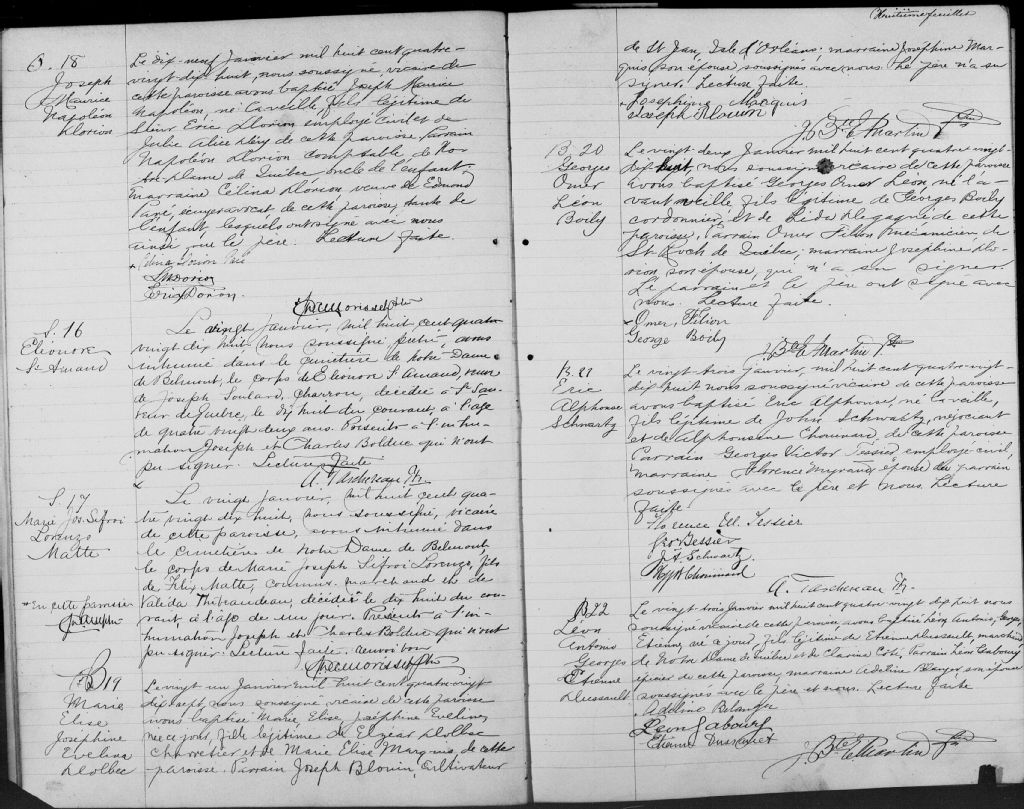 B. 18
Joseph
Maurice
Napoléon
Dorion
Le dix-neuf Janvier mil huit cent quatre-
vingt dix huit, nous soussigné, vicaire de
cette paroisse avons baptisé Joseph Maurice
Napoléon, né la veille, fils légitime de
Sieur Eric Dorion employé civil et de
Julie Alice de cette paroisse. Parrain
Napoléon Dorion comptable de Notre
Dame de Québec, oncle de l'enfant,
marraine Célina Dorion veuve de Edmond
Pagé, écuyer avocat de cette paroisse, tante de
l'enfant, lesquels ont signé avec nous
ainsi que le père. Lecture faite.
Dorion
Eric Dorion.
S. 16
Eléonore
St Amand
Le vingt Janvier, mil huit cent quatre
vingt dix huit, nous soussigné prêtre, avons
inhumé dans le cimetière de Notre Dame
de Belmont, le corps de Eléonore St Amand, veuve
de Joseph Soulard, charron, décédée à St Sau-
veur de Québec, le dix huit du courant, à l'âge
de quatre vingt deux ans. Présents à l'inhu-
mation Joseph et Charles Bolduc qui n'ont
pu signer. Lecture faite
A. Taschereau Ptr.
S. 17
Marie Jos. Sifroi
Lorenzo
Matte
Le vingt Janvier, mil huit cent qua-
tre vingt dix huit, nous soussigné, vicaire
de cette paroisse, avons inhumé dans
le cimetière de Notre Dame de Belmont,
le corps de Marie Joseph Sifroi Lorenzo, fils
de Félix Matte, commis marchand et de
Valéda Thibaudeau, décédé * le dix huit du cou-
rant, à l'âge de un jour. Présents à l'in-
humation Joseph et Charles Bolduc qui n'ont
pu signer. Lecture faite. renvoi bon
* En cette paroisse
B 19
Marie
Elise
Joséphine
Evelina
Dolbec
Le vingt un Janvier mil huit cent quatre-vingt
dix sept, nous soussigné vicaire de cette paroisse
avons baptisé Marie, Elise, Joséphine Evelina,
née ce jour, fille légitime de Elzéar Dolbec
charretier et de Marie Elise Marquis de cette
paroisse. Parrain Joseph Blouin, cultivateur
Huitième feuillet
de St Jean, Isle d'Orléans; marraine Joséphine Mar-
quis, son épouse, soussignés avec nous. Le père n'a su
signer. Lecture faite.
Josephine Marquis
Joseph Blouin
J. Bte E. Martin Ptre
B. 20
Georges
Omer
Léon
Boily
Le vingt deux Janvier mil huit cent quatre vingt-
dix huit, nous soussigné vicaire de cette paroisse
avons baptisé Georges Omer Léon né l'a-
vant veille fils légitime de Georges Boily
cordonnier, et de Lida Degagné de cette
paroisse. Parrain Omer Filion mécanicien de
St Roch de Québec; marraine Josephine Do-
rion, son épouse, qui n'a su signer.
Le parrain et le père ont signé avec
nous. Lecture faite.
Omer Filion
George Boily
J. Bte E. Martin Ptre
B. 21
Eric
Alphonse
Schwartz
Le vingt-trois Janvier, mil huit cent quatre-vingt-
dix-huit nous soussigné vicaire de cette paroisse
avons baptisé Eric Alphonse, né la veille,
fils légitime de John Schwartz, négociant
et de Alphonsine Chouinard, de cette paroisse
Parrain Georges Victor Tessier, employé civil,
marraine Florence Myrand épouse du parrain
soussignés avec le père et nous. Lecture
faite.
Florence M. Tessier
Geo Tessier
J. A. Schwartz
Chouinard
A. Taschereau Ptr.
B 22
Léon
Antonio
Georges
Etienne
Dussault
Le vingt trois Janvier mil huit cent quatre vingt dix huit nous
soussigné vicaire de cette paroisse, avons baptisé Léon, Antonio, Georges,
Etienne, né ce jour, fils légitime de Etienne Dussault, marchand
de Notre Dame de Québec et de Clarina Côté. Parrain Léon Gaboury
épicier de cette paroisse, marraine Adeline Blanger, son épouse
soussignés avec le père et nous. Lecture faite
Adeline Belanger
Léon Gaboury
Etienne Dussault
J. Bte E. Martin Ptre